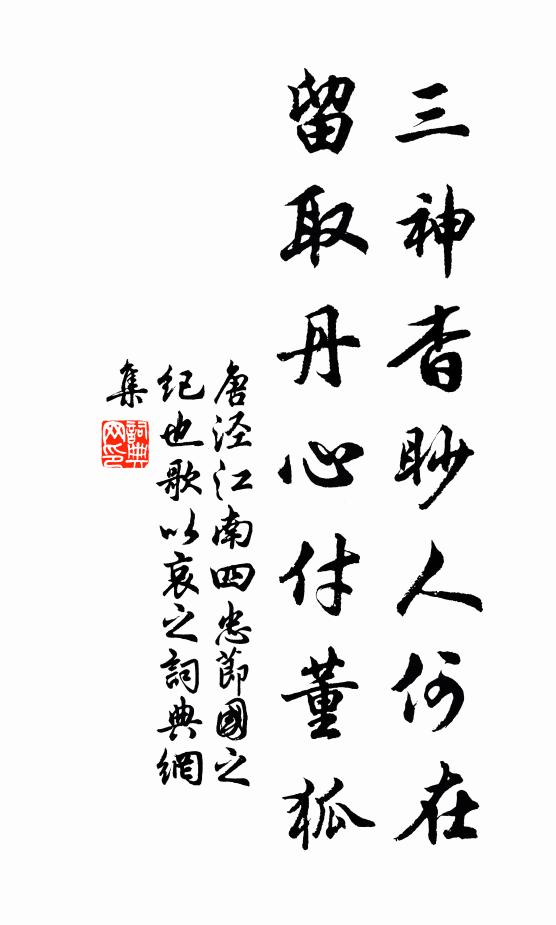 三神杳眇人何在
留取丹心付董狐
唐泾江南四忠節國之
紀也歌以哀之詞典網
集
詞典網印